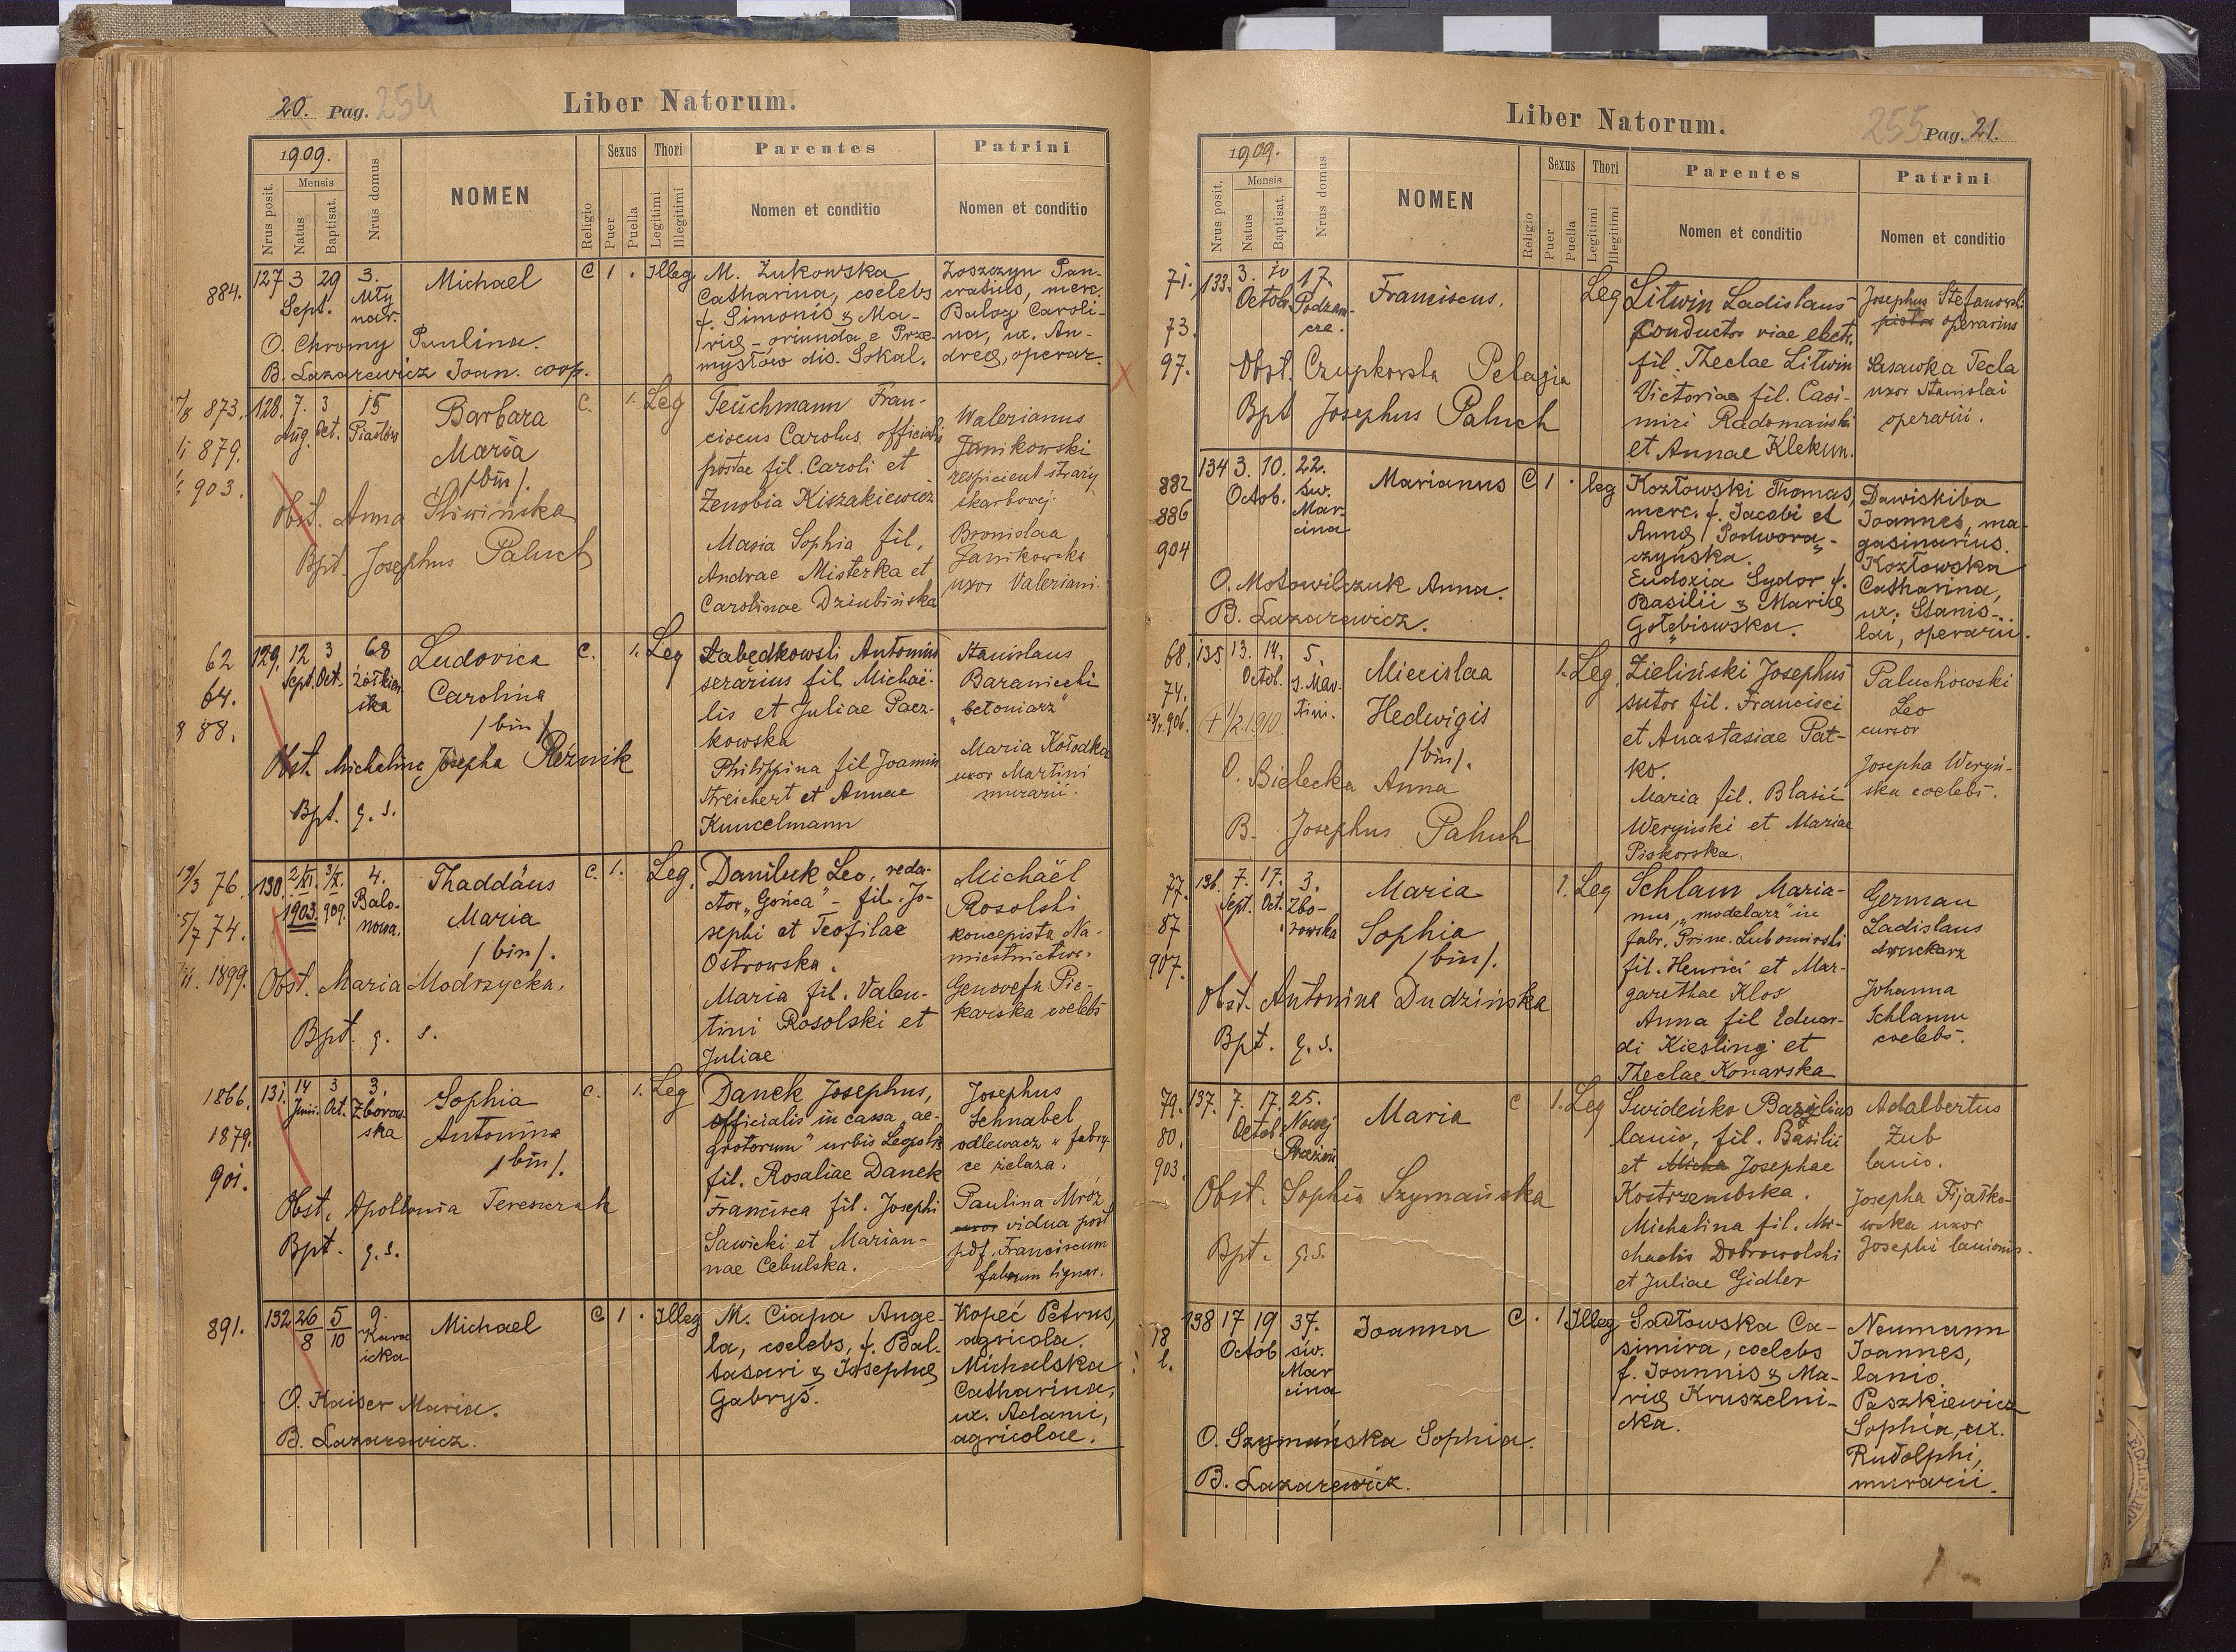 20. Pag. 254
Liber Natorum.
1909.
Nrus posit.
Mensis
Natus
Baptisat.
Nrus domus
NOMEN
Religio
Sexus
Puer
Puella
Thori
Legitimi
Illegitimi
Parentes
Nomen et conditio
Patrini
Nomen et conditio
884.
127 3 29 3.
Sept. Mły
nar.
Michael
C 1 . Illeg.
M. Żukowska
Catharina, coelebs
f. Simonis & Ma-
riæ - oriunda e Prze-
mysłów dis. Sokal.
Zoszczyn Pan-
cratius, merc.
Balog Caroli-
na, ux. An-
dreæ, operar.
O. Chromy Paulina.
B. Lazarewicz Joan. coop.
873.
879.
903.
128. 7. 3 15
Aug. Oct. Piastów
Barbara
Maria
/bin/.
C. 1. Leg
Teuchmann Fran-
ciscus Carolus officialis
postae fil. Caroli et
Zenobia Kiszakiewicz
Maria Sophia fil.
Andrae Misterka et
Carolinae Dziubińska
Walerianus
Janikowski
respicient straży
skarbowej
Bronislaa
Janikowska
uxor Valeriani.
Obst. Anna Śliwińska
Bpt. Josephus Paluch
62
64.
888.
129. 12 3 68
Sept. Oct. żółkiew
ska
Ludovica
Carolina
/bin/
C. 1. Leg
Łabędkowski Antonius
serarius fil Michaë-
lis et Juliae Pacz-
kowska
Philippina fil Joannis
Streichert et Annae
Kuncelmann
Stanislaus
Baraniecki
"betoniarz"
Maria Kołodka
uxor Martini
murarii.
Obst. Michelina Josepha Reźnik
Bpt. q. s.
19/3 76.
15/7 74.
1899.
130. 2/XI. 3/X. 4.
1903. 909. Balo-
nowa.
Thaddäus
Maria
/bin/.
C. 1. Leg.
Daniluk Leo, reda-
ctor "Gońca" - fil. Jo-
sephi et Teofilae
Ostrowska.
Maria fil. Valen-
tini Rosolski et
Juliae
Michaël
Rosolski
koncepista Na-
miestnictwa.
Genovefa Pie-
karska coelebs
Obst. Maria Modrzycka.
Bpt. q. s.
1866.
1879.
901.
131. 14 3 3.
Junii. Oct. Zborow
ska
Sophia
Antonina
/bin/.
C. 1. Leg
Danek Josephus,
officialis in cassa ae-
grotorum" urbis Leopolis
fil. Rosaliae Danek
Francisca fil. Josephi
Sawicki et Marian-
nae Cebulska.
Josephus
Schnabel
odlewacz w fabry
ce żelaza.
Paulina Mróz
uxor vidua post
pdf. Franciscum
fabrum lignar.
Obst. Apollonia Tereszczak
Bpt. q. s.
891.
132 26/8 5/10 9.
Kava
icka
Michael
C 1 . Illeg
M. Ciapa Ange-
la, coelebs, f. Bal-
tasari & Josephæ
Gabryś.
Kopeć Petrus,
agricola.
Michalska
Catharina,
ux. Adami,
agricolae.
O. Kaiser Maria.
B. Lazarewicz.
Liber Natorum.
255 Pag. 21.
1909.
Nrus posit.
Mensis
Natus
Baptisat.
Nrus domus
NOMEN
Religio
Sexus
Puer
Puella
Thori
Legitimi
Illegitimi
Parentes
Nomen et conditio
Patrini
Nomen et conditio
71.
73.
97.
133. 3. 10 17.
Octob. Podzam-
cze.
Franciscus.
Leg
Litwin Ladislaus
Conductor viae electr.
fil. Theclae Litwin
Victoriae fil. Casi-
miri Radomański
et Annae Klekun.
Josephus Stefanowski
operarius
Sasawka Tecla
uxor Stanislai
operarii.
Obst. Czupkowska Pelagia
Bpt Josephus Paluch
882
886
904
134 3. 10. 22.
Octob. św.
Mar-
cina
Marianus
C 1 . leg
Kozłowski Thomas,
merc. f. Jacobi et
Annæ Podwora-
czyńska.
Eudoxia Sydor f.
Basilii & Mariæ
Gołębiowska.
Dawiskiba
Joannes, ma-
gasinarius.
Kozłowska
Catharina,
ux. Stanis-
lai, operarii.
O. Motowilczuk Anna.
B. Lazarewicz.
68.
74.
906.
135 13. 14. 5.
Octob. S. Mar-
tini.
+ 1/2.1910
Miecislaa
Hedwigis
/bin/.
1. Leg.
Zieliński Josephus
sutor fil. Francisci
et Anastasiae Pat-
ko.
Maria fil. Blasii
Weryński et Mariae
Piskorska.
Paluchowski
Leo
cursor
Josepha Weryń-
ska coelebs.
O. Bielecka Anna
B. Josephus Paluch
77.
87
907.
136. 7. 17. 3.
Sept. Oct. Zbo-
rowska
Maria
Sophia
/bin/.
1. Leg
Schlam Maria-
nus, "modelarz" in
fabr. Princ. Lubomirski
fil. Henrici et Mar-
garethae Klos
Anna fil Eduar-
di Kiesling et
Theclae Konarska
German
Ladislaus
drukarz
Johanna
Schlamm
coelebs.
Obst. Antonina Dudzińska
Bpt. q. s.
79.
80.
903.
137. 7. 17. 25.
Octob. Nowej
Maria
C 1. Leg
Swideńko Basylius
lanio, fil. Basilii
et Josephae
Kostrzembska.
Michalina fil. Mi-
chaelis Dobrowolski
et Juliae Gidler
Adalbertus
Żub
lanio.
Josepha Fijałko-
wska uxor
Josephi lanionis.
Obst. Sophia Szymańska
Bpt. q. s.
138 17 19 37.
Octob św.
Mar
cina
Joanna
C . 1 Illeg
Sadłowska Ca-
simira, coelebs
f. Joannis & Ma-
riæ Kruszelni-
cka.
Neumann
Joannes,
lanio.
Paszkiewicz
Sophia, ux.
Rudolphi,
murarii.
O. Szymańska Sophia.
B. Lazarewicz.